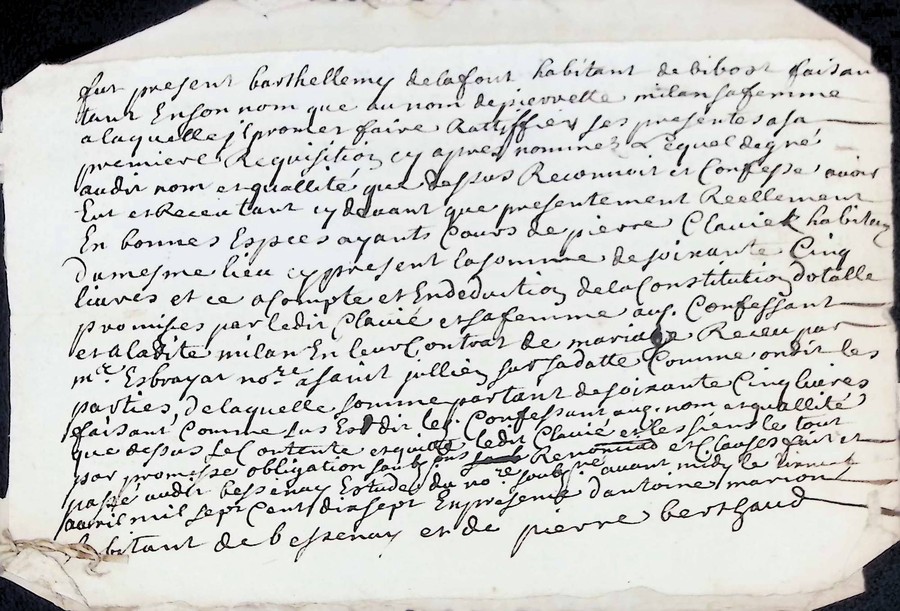 fut present barthellemy delafont habitant de bibost faisan
tant En son nom que au nom de pierrette milan sa femme
a laquelle jl promet faire Rattiffier ses presentes a sa
premiere Requisition cy apres nommez Lequel de gré
audit nom et quallité que dessus Reconnoit et Confesse avoir
Eut et Receu tant cy devant que presentement Reellement
En bonnes Espces ayants Cours de pierre Clavié habitan
du mesme lieu cy present la somme de soixante Cinq
livres et ce a Compte et En deduction de la Constitution dotalle
promises par ledit Clavié et sa femme aud. Confessant
et a ladite milan En leur Contrat de mariage Receu par
me. Esbrayat nore. a saint jullien sur sa datte Comme ont dit les
parties, de laquelle somme partant de soixante Cinq livres
faisant Comme sus Est dit led. Confessant aud. nom et quallité
que dessus se Contente et quitte ledit Clavié et les siens le tout
par promesse obligation soub Renoncia et Clauses fait et
passé audit bessenay Estude du nore. soubsne. avant midy le
avril mil sept Cent dix sept En presence d'antoine marion
habitant de bessenay et de pierre berthaud